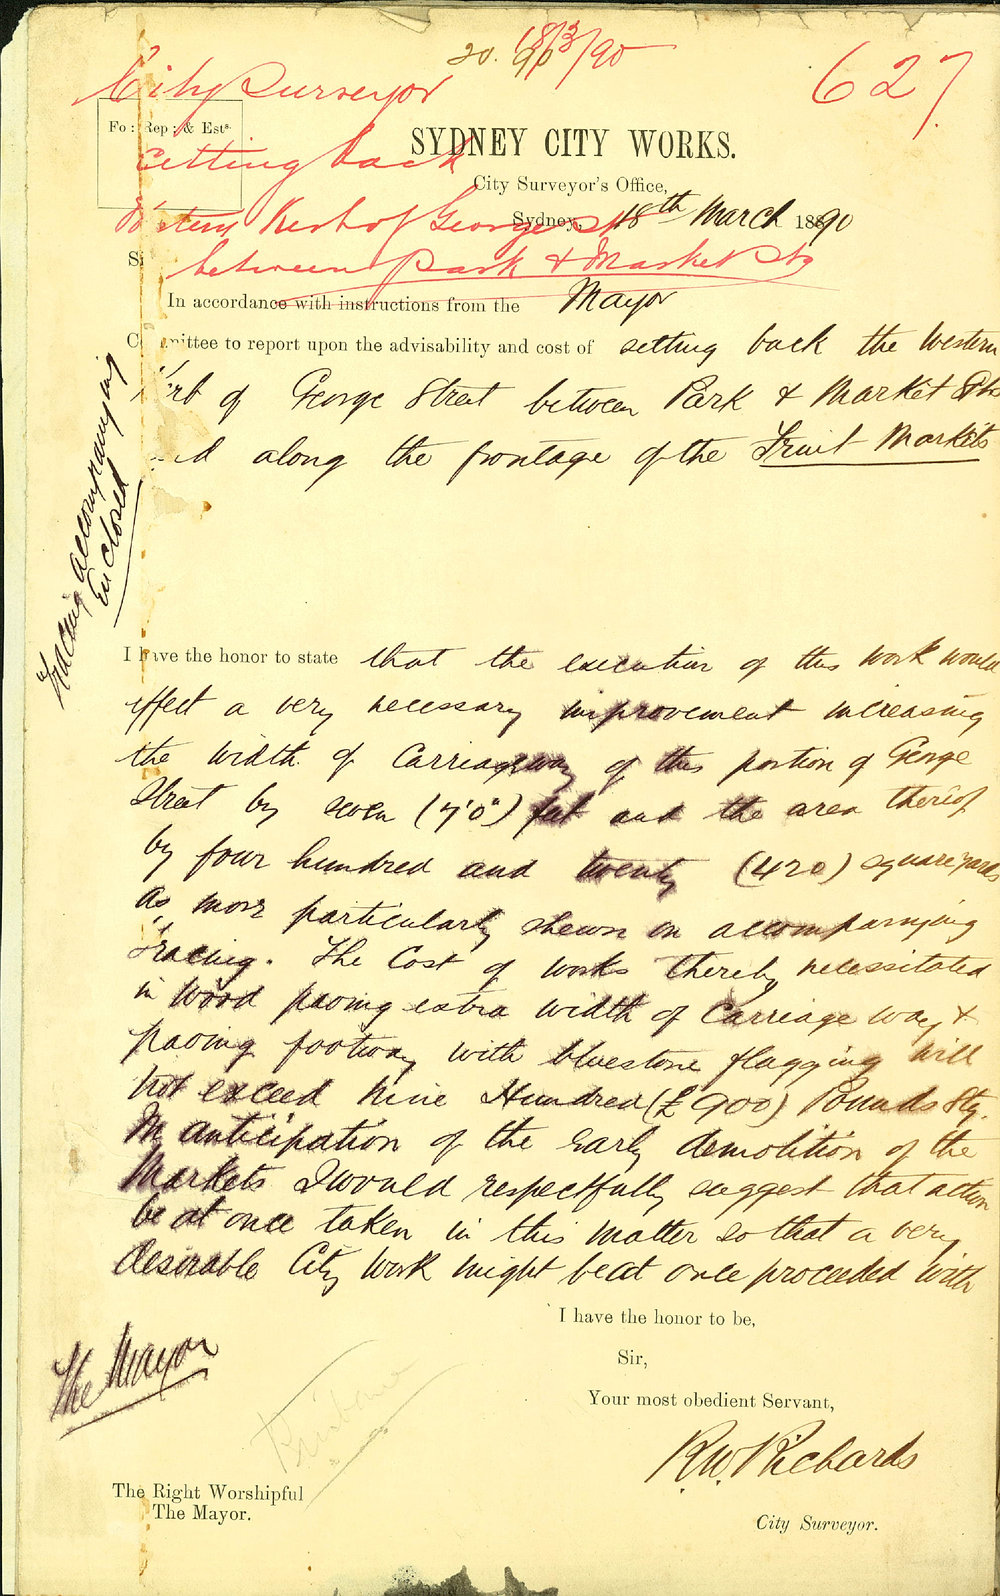 20. 18/3/90
627
City Surveyor
Fo: Rep: & Ests.
Setting back
SYDNEY CITY WORKS.
City Surveyor's Office,
Western Kerb of George St
Sydney, 18th March 1890
between Park & Market Sts
In accordance with instructions from the Mayor
Committee to report upon the advisability and cost of setting back the Western
Kerb of George Street between Park & Market Sts
and along the frontage of the Fruit Markets
Tracing accompanying
enclosed
I have the honor to state that the execution of this work would
effect a very necessary improvement increasing
the width of Carriageway of this portion of George
Street by seven (7'0") feet and the area thereof
by four hundred and twenty (420) square yards
as more particularly shewn on accompanying
Tracing. The Cost of works thereby necessitated
in Wood paving extra width of Carriage way &
paving footway with bluestone flagging will
not exceed Nine Hundred (£900) Pounds Stg.
In anticipation of the early demolition of the
Markets I would respectfully suggest that action
be at once taken in this matter so that a very
desirable City Work might be at once proceeded with
I have the honor to be,
Sir,
Your most obedient Servant,
The Mayor
R.W. Richards
The Right Worshipful
The Mayor.
City Surveyor.